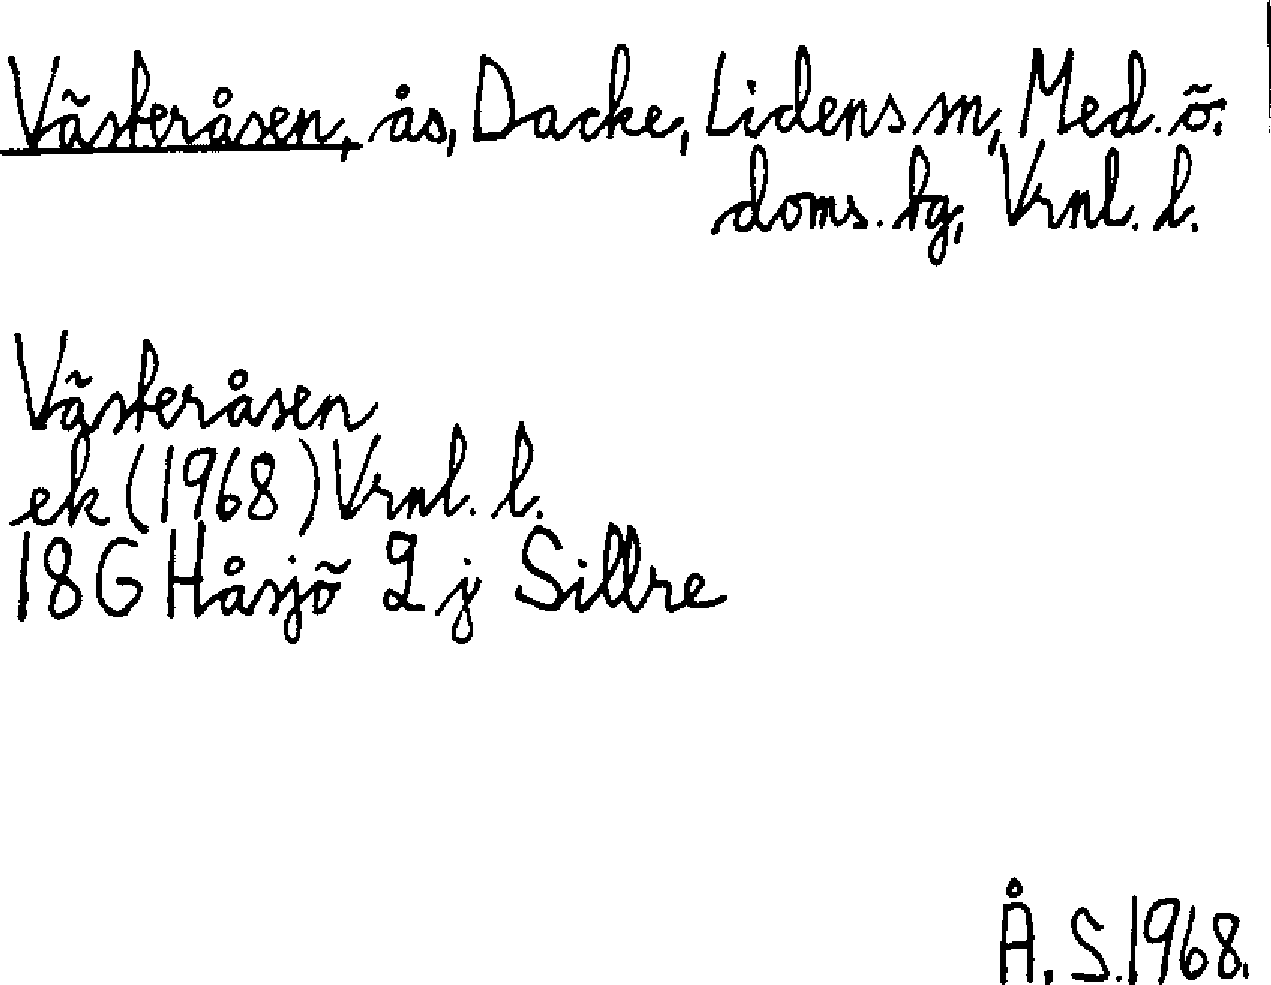 Västeråsen, ås, Dacke, Lidens sn, Med. ö.
doms. hg, Vrnl. l.
Västeråsen
ek (1968) Vrnl. l.
18G Håsjö 2 j Sillre
Å. S. 1968.